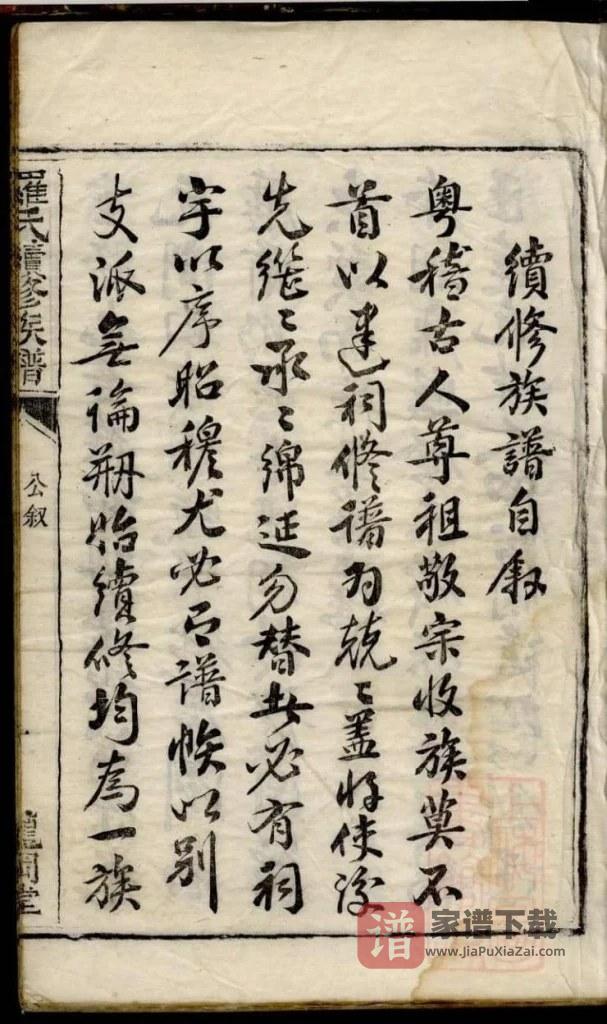 續修族譜自叙
粵稽古人尊祖敬宗收族莫不
首以建祠修譜為兢〻蓋将使後
先継〻承〻綿延勿替者必有祠
宇以序昭穆尤必有譜帙以别
支派無論剏始續修均為一族
羅氏續修族譜
公叙
龍岡堂
譜
家谱下载
www.JiaPuXiaZai.com